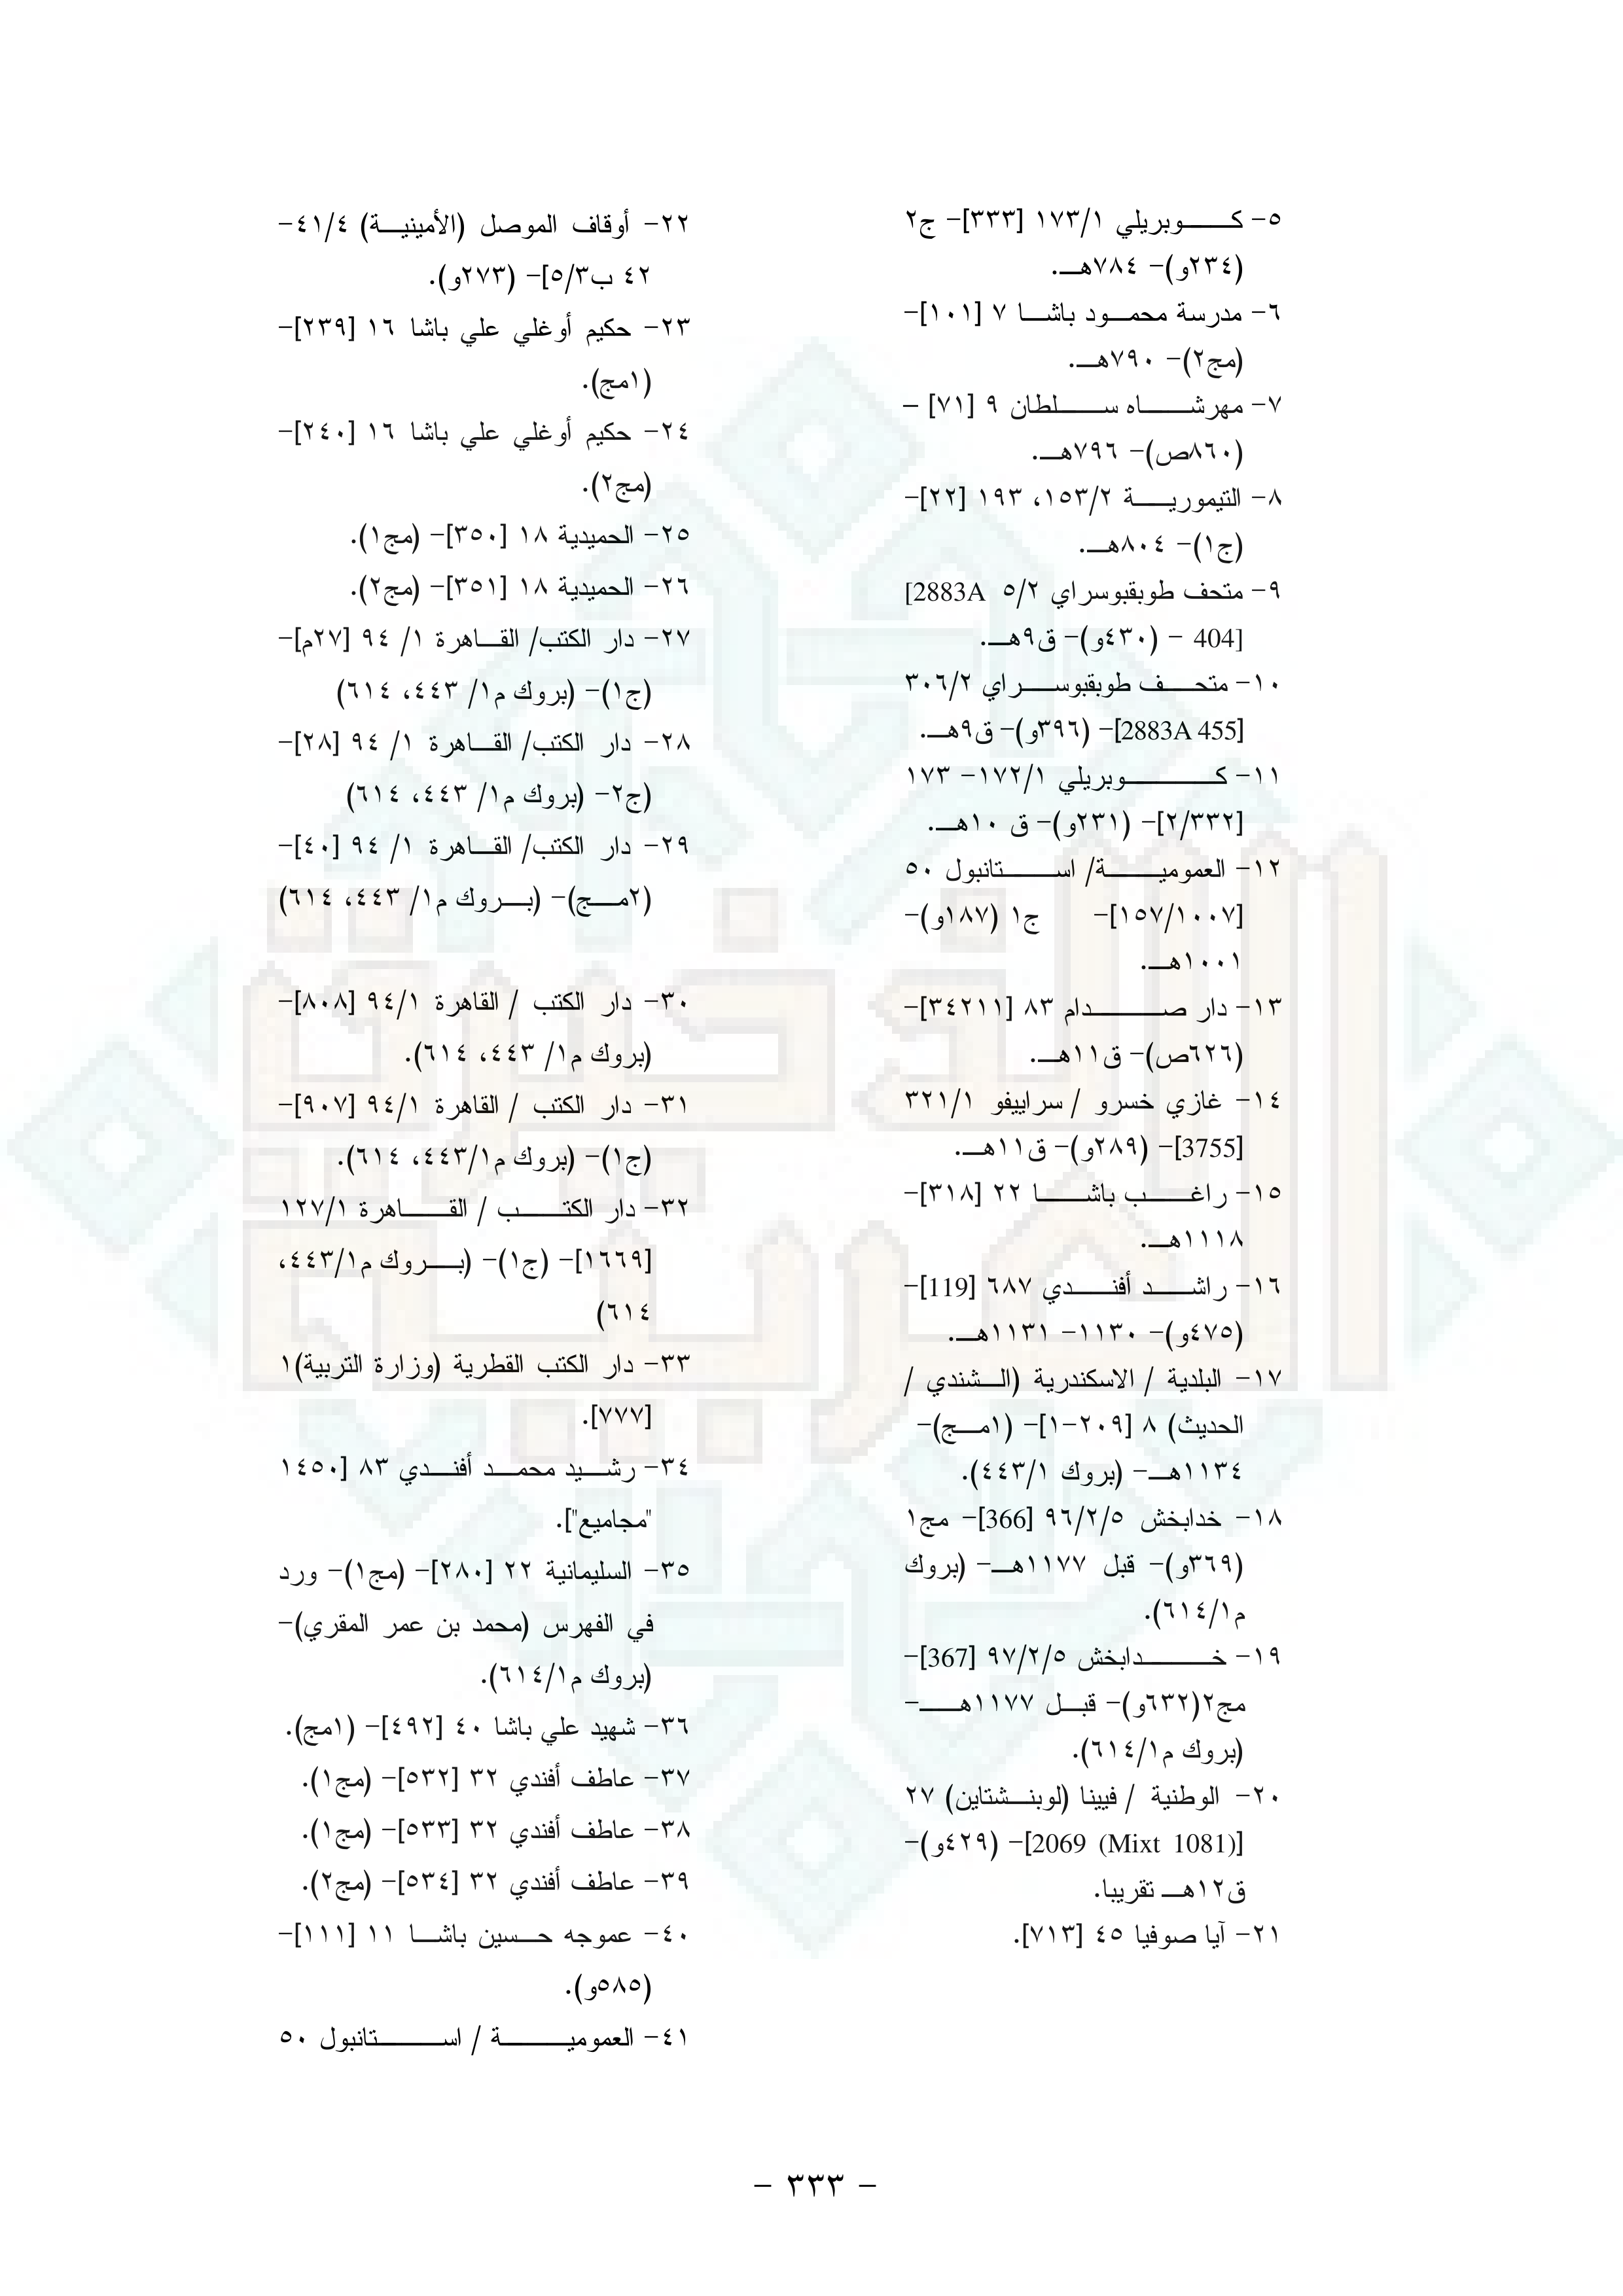 ٥- كوبريلي ١٧٣/١ [٣٣٣]- ج٢
(٢٣٤و)- ٧٨٤هـ.
٦- مدرسة محمود باشا ٧ [١٠١]-
(مج٢)- ٧٩٠هـ.
٧- مهرشاه سلطان ٩ [٧١] –
(٨٦٠ص)- ٧٩٦هـ.
٨- التيمورية ١٥٣/٢، ١٩٣ [٢٢]-
(ج١)- ٨٠٤هـ.
٩- متحف طوبقبوسراي ٥/٢ [2883A
404] - (٤٣٠و)- ق٩هـ.
١٠- متحف طوبقبوسراي ٣٠٦/٢
[2883A 455]- (٣٩٦و)- ق٩هـ.
١١- كوبريلي ١٧٢/١- ١٧٣
[٢/٣٣٢]- (٢٣١و)- ق ١٠هـ.
١٢- العمومية/ استانبول ٥٠
[١٥٧/١٠٠٧]- ج١ (١٨٧و)-
١٠٠١هـ.
١٣- دار صدام ٨٣ [٣٤٢١١]-
(٦٢٦ص)- ق١١هـ.
١٤- غازي خسرو / سراييفو ٣٢١/١
[3755]- (٢٨٩و)- ق١١هـ.
١٥- راغب باشا ٢٢ [٣١٨]-
١١١٨هـ.
١٦- راشد أفندي ٦٨٧ [119]-
(٤٧٥و)- ١١٣٠- ١١٣١هـ.
١٧- البلدية / الاسكندرية (الشندي /
الحديث) ٨ [٢٠٩-١]- (١مج)-
١١٣٤هـ- (بروك ٤٤٣/١).
١٨- خدابخش ٩٦/٢/٥ [366]- مج١
(٣٦٩و)- قبل ١١٧٧هـ- (بروك
م٦١٤/١).
١٩- خدابخش ٩٧/٢/٥ [367]-
مج٢(٦٣٢و)- قبل ١١٧٧هـ-
(بروك م٦١٤/١).
٢٠- الوطنية / فيينا (لوبنشتاين) ٢٧
[2069 (Mixt 1081)]- (٤٢٩و)-
ق١٢هـ تقريبا.
٢١- آيا صوفيا ٤٥ [٧١٣].
٢٢- أوقاف الموصل (الأمينية) ٤١/٤-
٤٢ ب٥/٣]- (٢٧٣و).
٢٣- حكيم أوغلي علي باشا ١٦ [٢٣٩]-
(١مج).
٢٤- حكيم أوغلي علي باشا ١٦ [٢٤٠]-
(مج٢).
٢٥- الحميدية ١٨ [٣٥٠]- (مج١).
٢٦- الحميدية ١٨ [٣٥١]- (مج٢).
٢٧- دار الكتب/ القاهرة ١/ ٩٤ [٢٧م]-
(ج١)- (بروك م١/ ٤٤٣، ٦١٤)
٢٨- دار الكتب/ القاهرة ١/ ٩٤ [٢٨]-
(ج٢- (بروك م١/ ٤٤٣، ٦١٤)
٢٩- دار الكتب/ القاهرة ١/ ٩٤ [٤٠]-
(٢مج)- (بروك م١/ ٤٤٣، ٦١٤)
٣٠- دار الكتب / القاهرة ٩٤/١ [٨٠٨]-
(بروك م١/ ٤٤٣، ٦١٤).
٣١- دار الكتب / القاهرة ٩٤/١ [٩٠٧]-
(ج١)- (بروك م٤٤٣/١، ٦١٤).
٣٢- دار الكتب / القاهرة ١٢٧/١
[١٦٦٩]- (ج١)- (بروك م٤٤٣/١،
٦١٤)
٣٣- دار الكتب القطرية (وزارة التربية)١
[٧٧٧].
٣٤- رشيد محمد أفندي ٨٣ [١٤٥٠
"مجاميع"].
٣٥- السليمانية ٢٢ [٢٨٠]- (مج١)- ورد
في الفهرس (محمد بن عمر المقري)-
(بروك م٦١٤/١).
٣٦- شهيد علي باشا ٤٠ [٤٩٢]- (١مج).
٣٧- عاطف أفندي ٣٢ [٥٣٢]- (مج١).
٣٨- عاطف أفندي ٣٢ [٥٣٣]- (مج١).
٣٩- عاطف أفندي ٣٢ [٥٣٤]- (مج٢).
٤٠- عموجه حسين باشا ١١ [١١١]-
(٥٨٥و).
٤١- العمومية / استانبول ٥٠
- ٣٣٣ -
الذخيرة
العربية